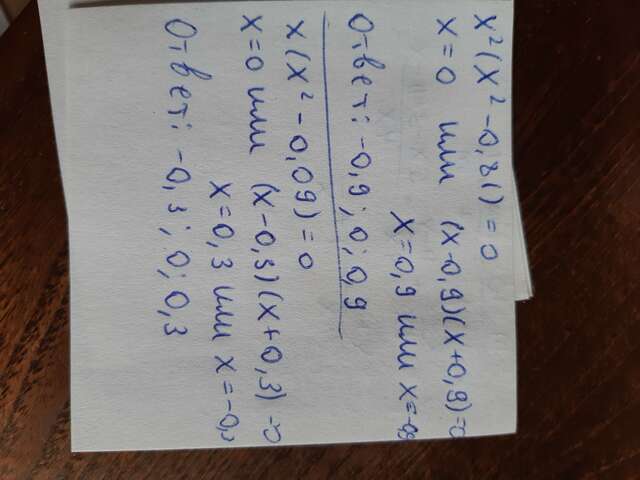 x²(x²-0,81)=0
x=0 или (x-0,9)(x+0,9)=0
x=0,9 или x=-0,9
Ответ: -0,9; 0; 0,9
x(x²-0,09)=0
x=0 или (x-0,3)(x+0,3)=0
x=0,3 или x=-0,3
Ответ: -0,3; 0; 0,3